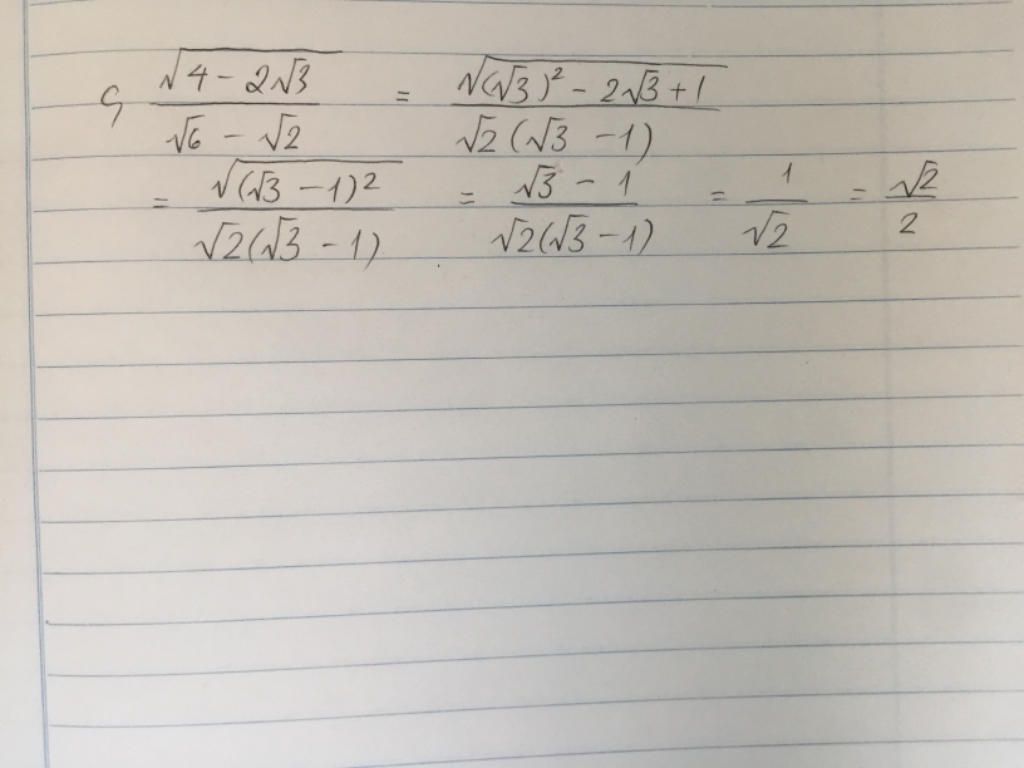 c, √(4 - 2√3) / (√6 - √2) = √((√3)² - 2√3 + 1) / (√2(√3 - 1))
= √((√3 - 1)²) / (√2(√3 - 1)) = (√3 - 1) / (√2(√3 - 1)) = 1/√2 = √2/2